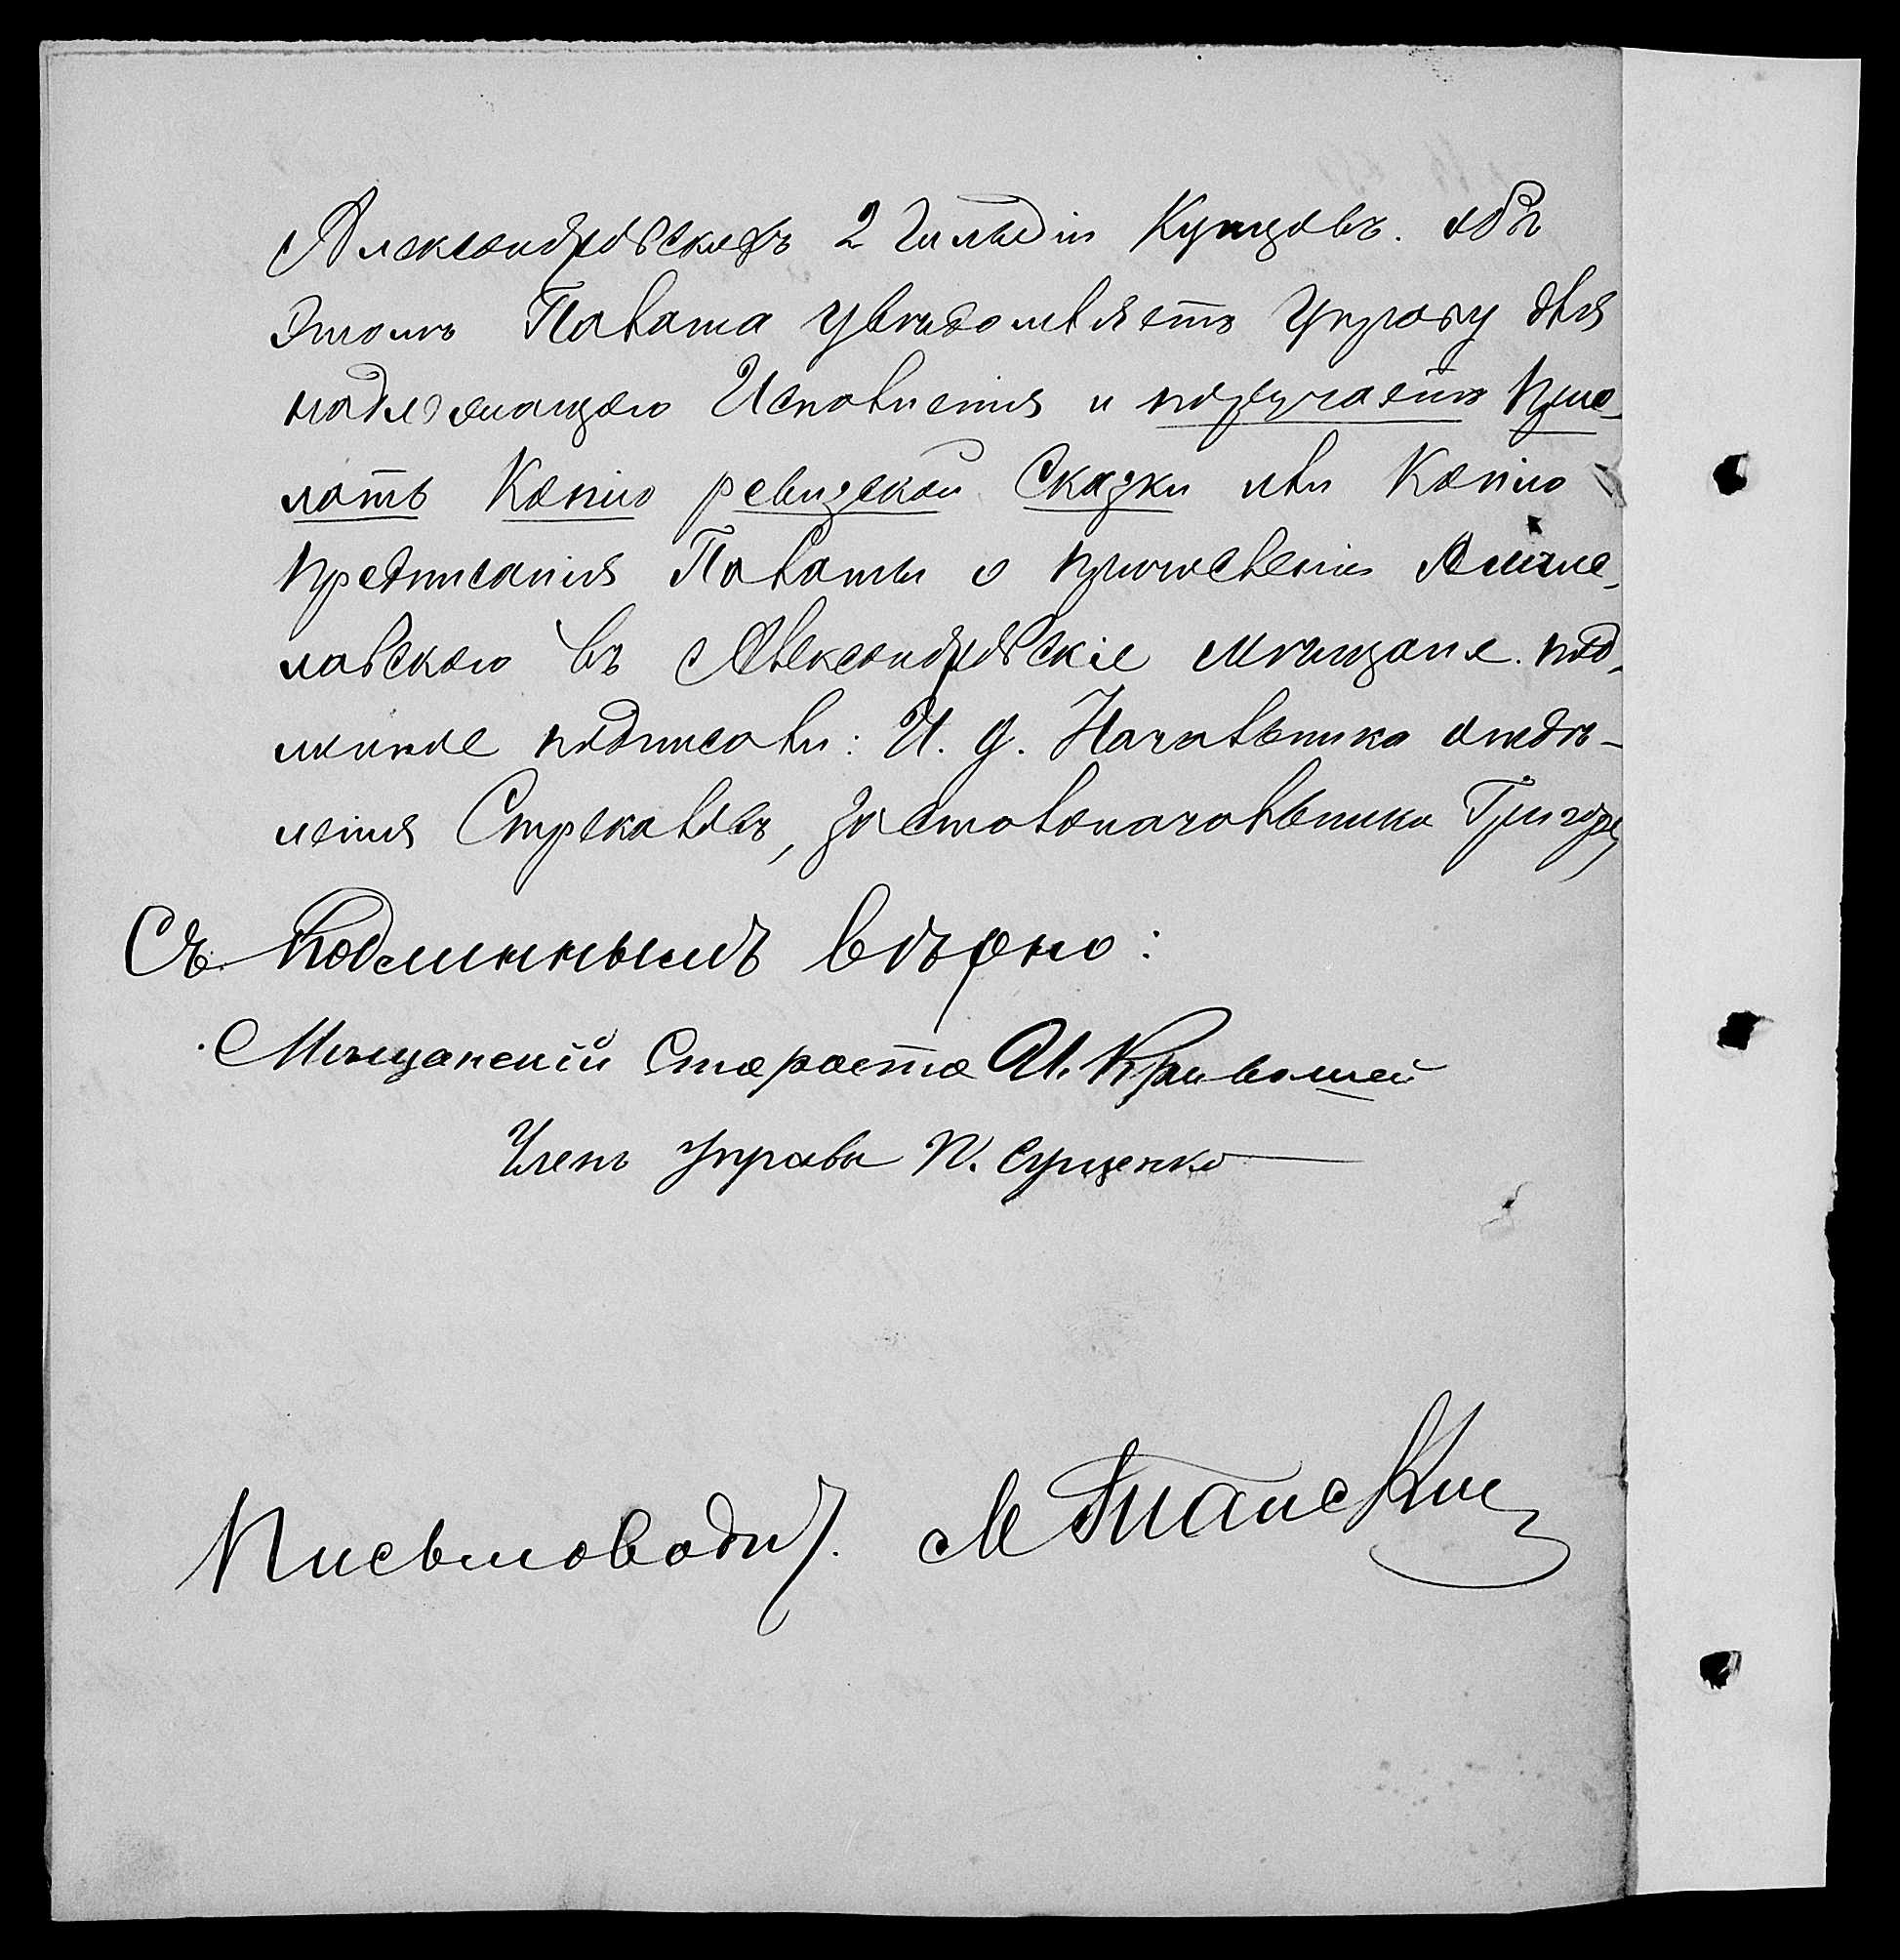 Александровскихъ 2 Гильдіи Купцовъ. объ
этомъ Палата увѣдомляетъ Управу для
надлежащаго Исполненія и поручаетъ при-
лать Копію ревизской Сказки или Копію
предписанія Палаты о причисленіи
лавскаго въ Александровскіе мѣщане. под-
линное подписали: И. д. Начальника отдѣ-
ленія Стрекаловъ, за столоначальника Григор
Съ подлиннымъ вѣрно:
Мѣщанскій Староста И. Кривошей
Членъ Управы П. Сущенко
Письмоводит. М